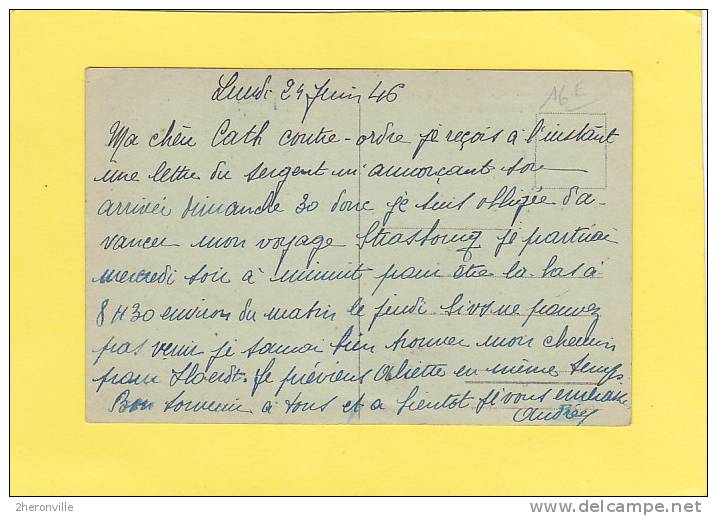 Lundi 24 Juin 46
16 E
Ma chère Cath contre-ordre je reçois à l'instant
une lettre du sergent m'annonçant son
arrivée dimanche 30 donc je suis obligée d'a-
vancer mon voyage Strasbourg je partirai
mercredi soir à minuit pour être la bas à
8 H 30 environ du matin le jeudi Si vs ne pouvez
pas venir je saurai bien trouver mon chemin
pour Hoerdt. Je préviens Aliette en même temps.
Bon souvenir à tous et a bientot Je vous embrasse
Andrée
2heronville
delcampe.net